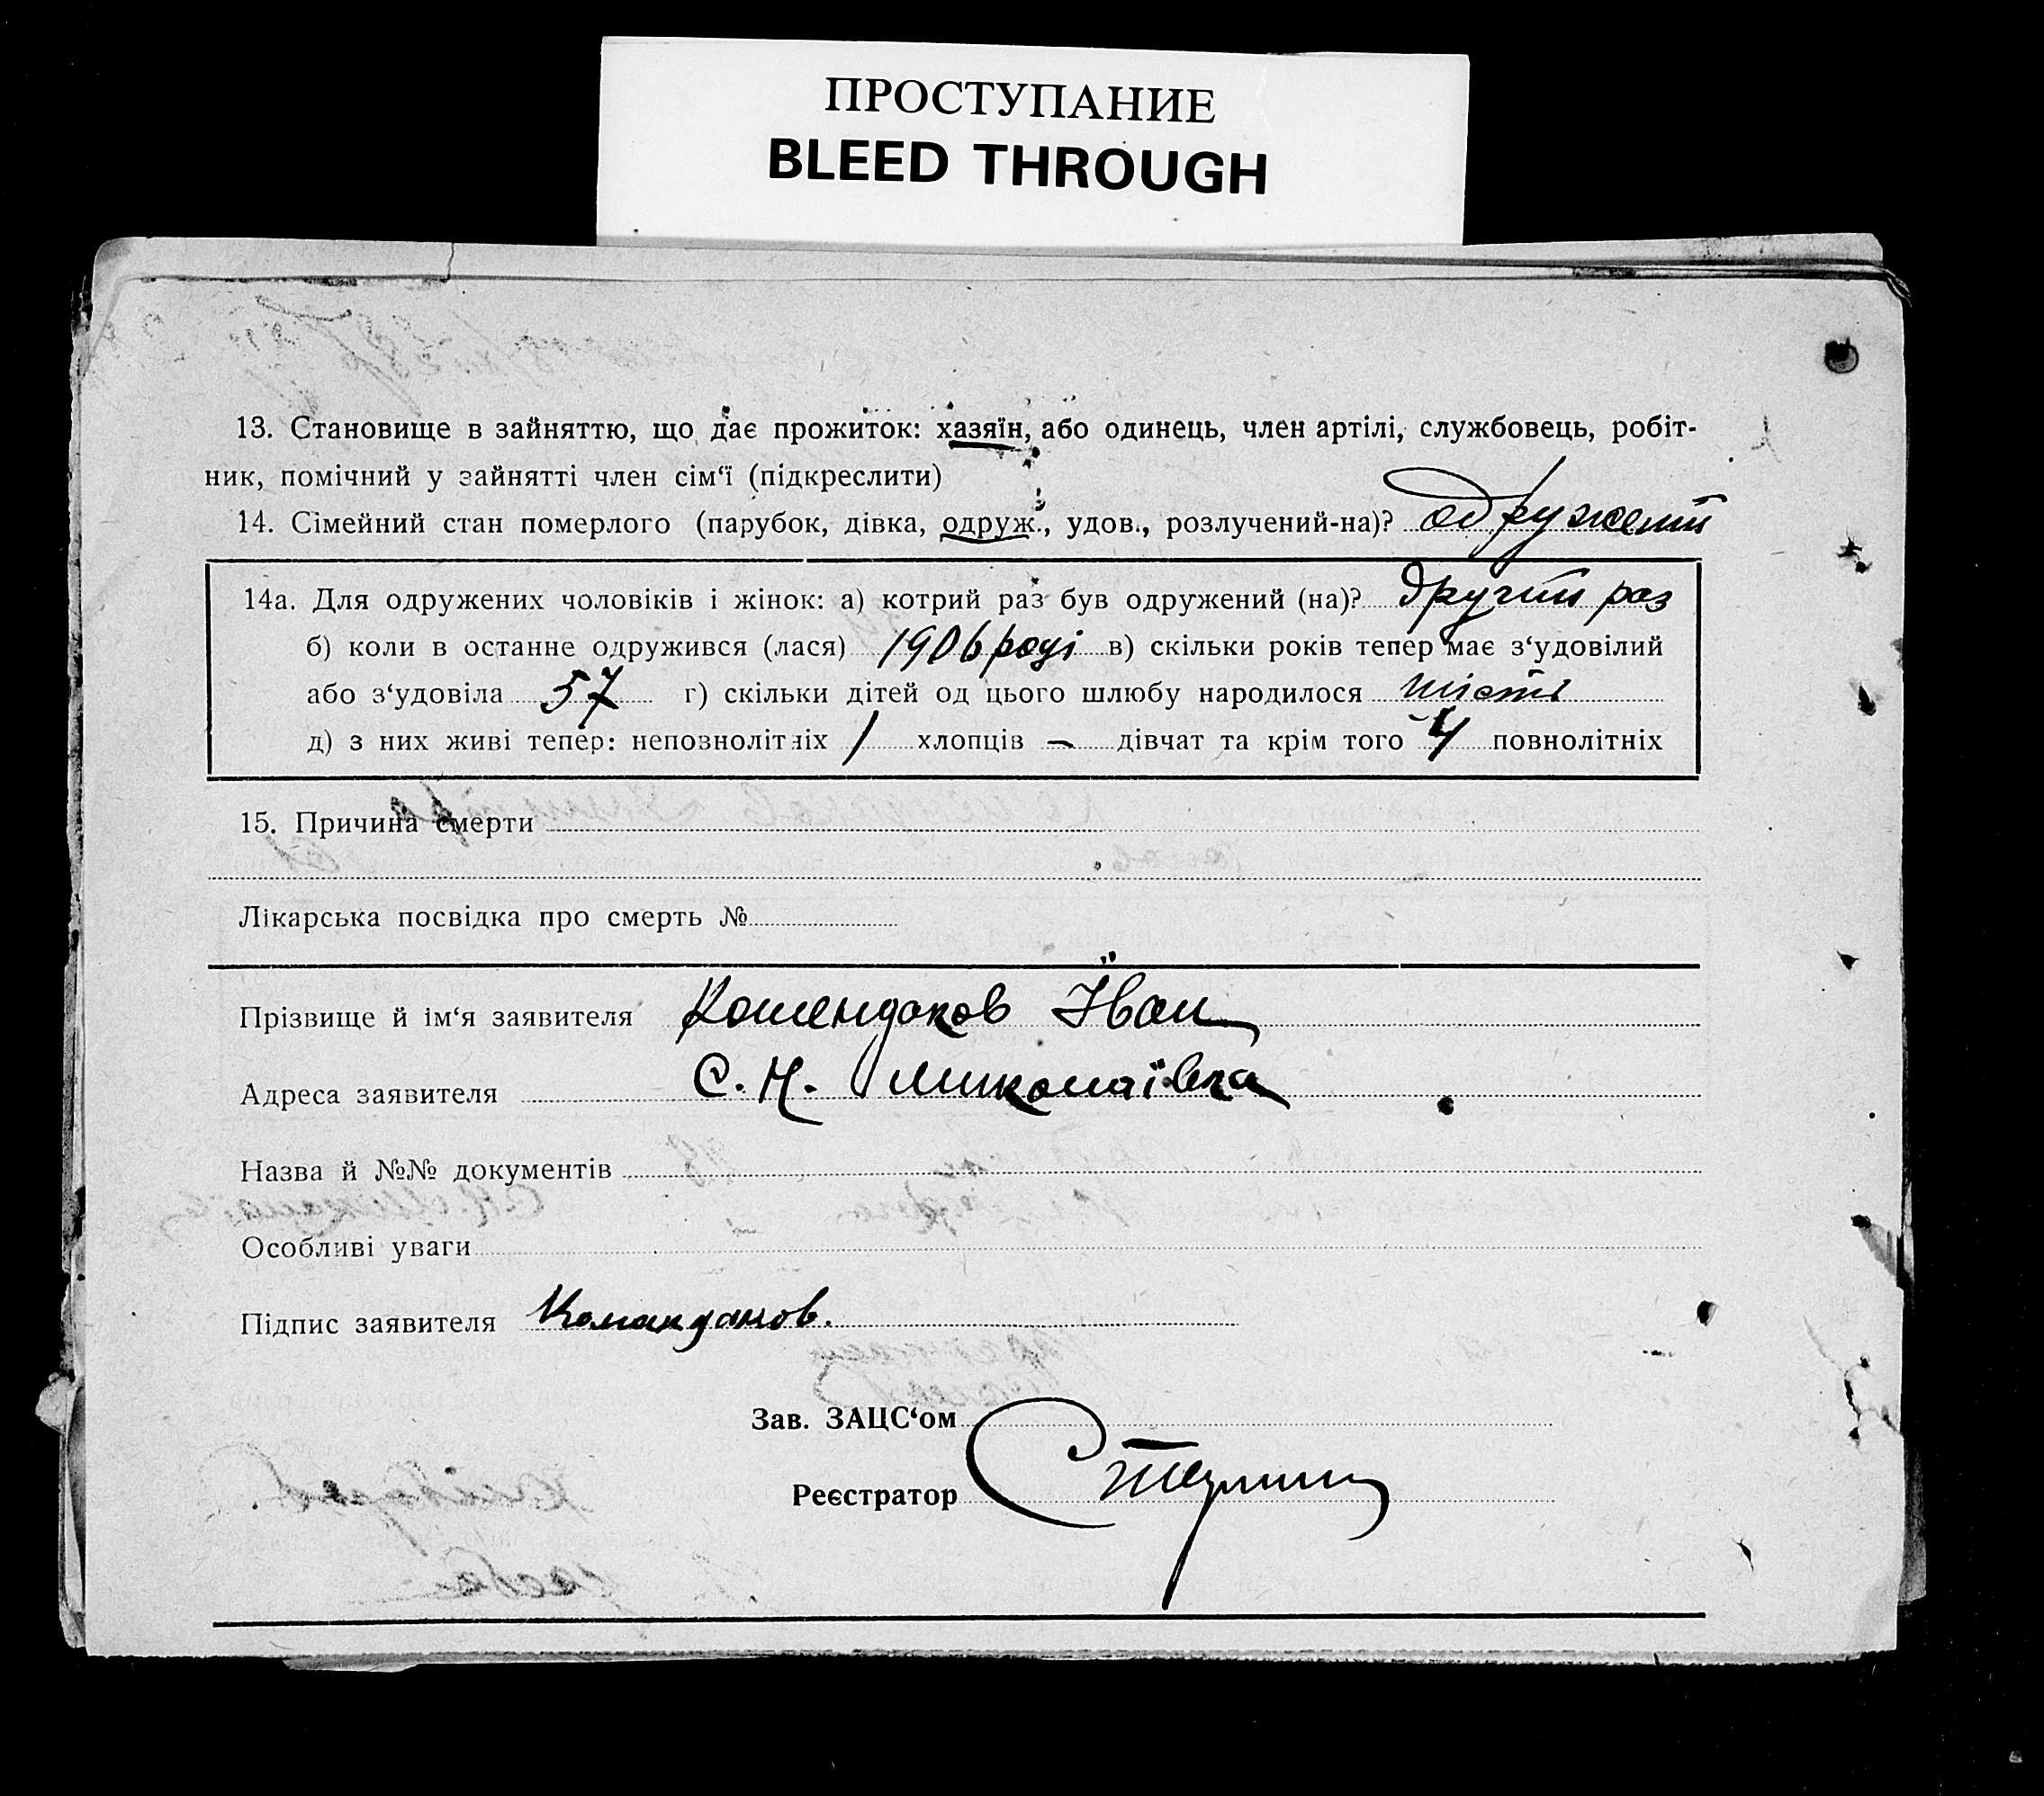 ПРОСТУПАНИЕ
BLEED THROUGH
13. Становище в зайняттю, що дає прожиток: хазяїн, або одинець, член артілі, службовець, робіт-
ник, помічний у зайнятті член сім‘ї (підкреслити)
14. Сімейний стан померлого (парубок, дівка, одруж., удов., розлучений-на)? одружений
14а. Для одружених чоловіків і жінок: а) котрий раз був одружений (на)? другий раз
б) коли в останне одружився (лася) 1906 році в) скільки років тепер має з‘удовілий
або з‘удовіла 57 г) скільки дітей од цього шлюбу народилося шість
д) з них живі тепер: непознолітніх 1 хлопців — дівчат та крім того 4 повнолітніх
15. Причина смерти
Лікарська посвідка про смерть №
Прізвище й ім‘я заявителя Комендаков Іван
Адреса заявителя С. Н. Миколаївка
Назва й №№ документів
Особливі уваги
Підпис заявителя Команданов.
Зав. ЗАЦС‘ом
Реєстратор